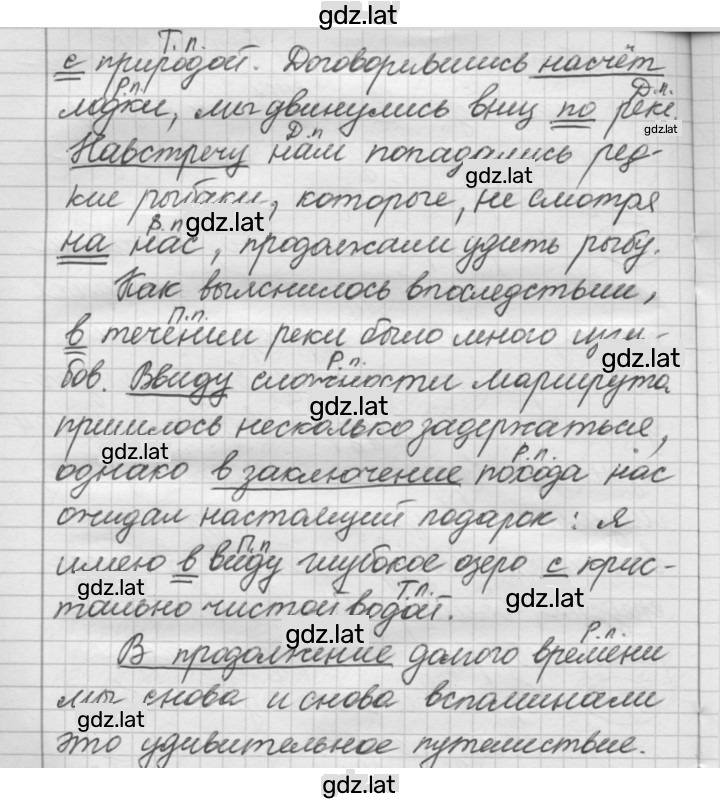 gdz.lat
Т. п.
с природой. Договорившись насчёт
Р. п. Д. п.
лодки, мы двинулись вниз по реке.
gdz.lat
Д. п
Навстречу нам попадались ред-
gdz.lat
кие рыбаки, которые, не смотря
gdz.lat
В. п
на нас, продолжали удить рыбу.
Как выяснилось впоследствии,
П. п.
в течении реки было много изги-
gdz.lat
Р. п.
бов. Ввиду сложности маршрута
gdz.lat
пришлось несколько задержаться,
gdz.lat
Р. п.
однако в заключение похода нас
ожидал настоящий подарок: я
П. п
имею в виду глубокое озеро с крис-
gdz.lat gdz.lat
Т. п.
тально чистой водой.
gdz.lat
Р. п.
В продолжение долгого времени
мы снова и снова вспоминали
gdz.lat
это удивительное путешествие.
gdz.lat